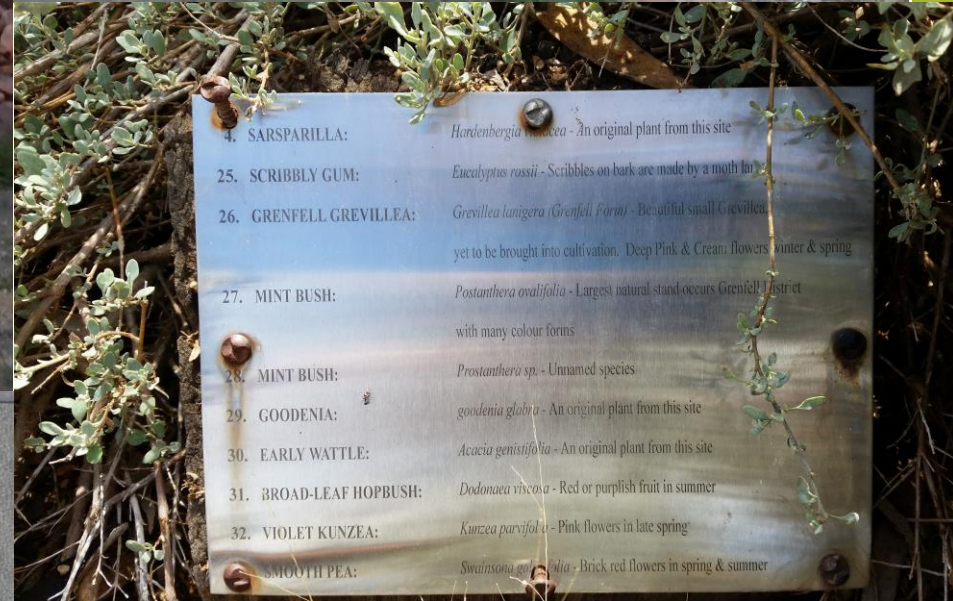 4. SARSPARILLA: Hardenbergia - An original plant from this site
25. SCRIBBLY GUM: Eucalyptus rossii - Scribbles on bark are made by a moth
26. GRENFELL GREVILLEA: Grevillea lanigera (Grenfell Form) - Beautiful small Grevillea,
yet to be brought into cultivation. Deep Pink & Cream flowers winter & spring
27. MINT BUSH: Postanthera ovalifolia - Largest natural stand occurs Grenfell District
with many colour forms
28. MINT BUSH: Prostanthera sp. - Unnamed species
29. GOODENIA: goodenia glabra - An original plant from this site
30. EARLY WATTLE: Acacia genistifolia - An original plant from this site
31. BROAD-LEAF HOPBUSH: Dodonaea viscosa - Red or purplish fruit in summer
32. VIOLET KUNZEA: Kunzea parvifolia - Pink flowers in late spring
SMOOTH PEA: Swainsona - Brick red flowers in spring & summer